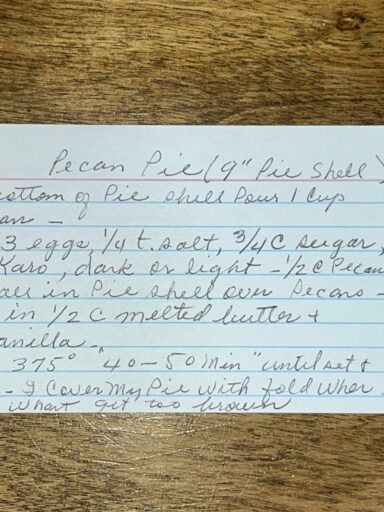 Pecan Pie (9" Pie Shell)
ottom of Pie shell Pour 1 Cup
an -
3 eggs, 1/4 t. salt, 3/4 C sugar,
Karo, dark or light - 1/2 C Pecan
in Pie shell over Pecans -
in 1/2 C melted butter +
anilla -
375° "40-50 min" until set +
- I Cover My Pie with
get too brown